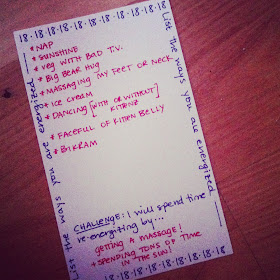 18·18·18·18·18·18·18·18·18
List the ways you are energized
*NAP
*SUNSHINE
*VEG WITH BAD T.V.
*BIG BEAR HUG
*MASSAGING MY FEET OR NECK
*ICE CREAM
*DANCING [WITH OR WITHOUT] KITTENZ
*FACEFUL OF KITTEN BELLY
*BIKRAM
CHALLENGE: I will spend time
re-energizing by...
GETTING A MASSAGE!
*SPENDING TONS OF TIME
IN THE SUN!
List the ways you are energized
18·18·18·18·18·18·18·18·18